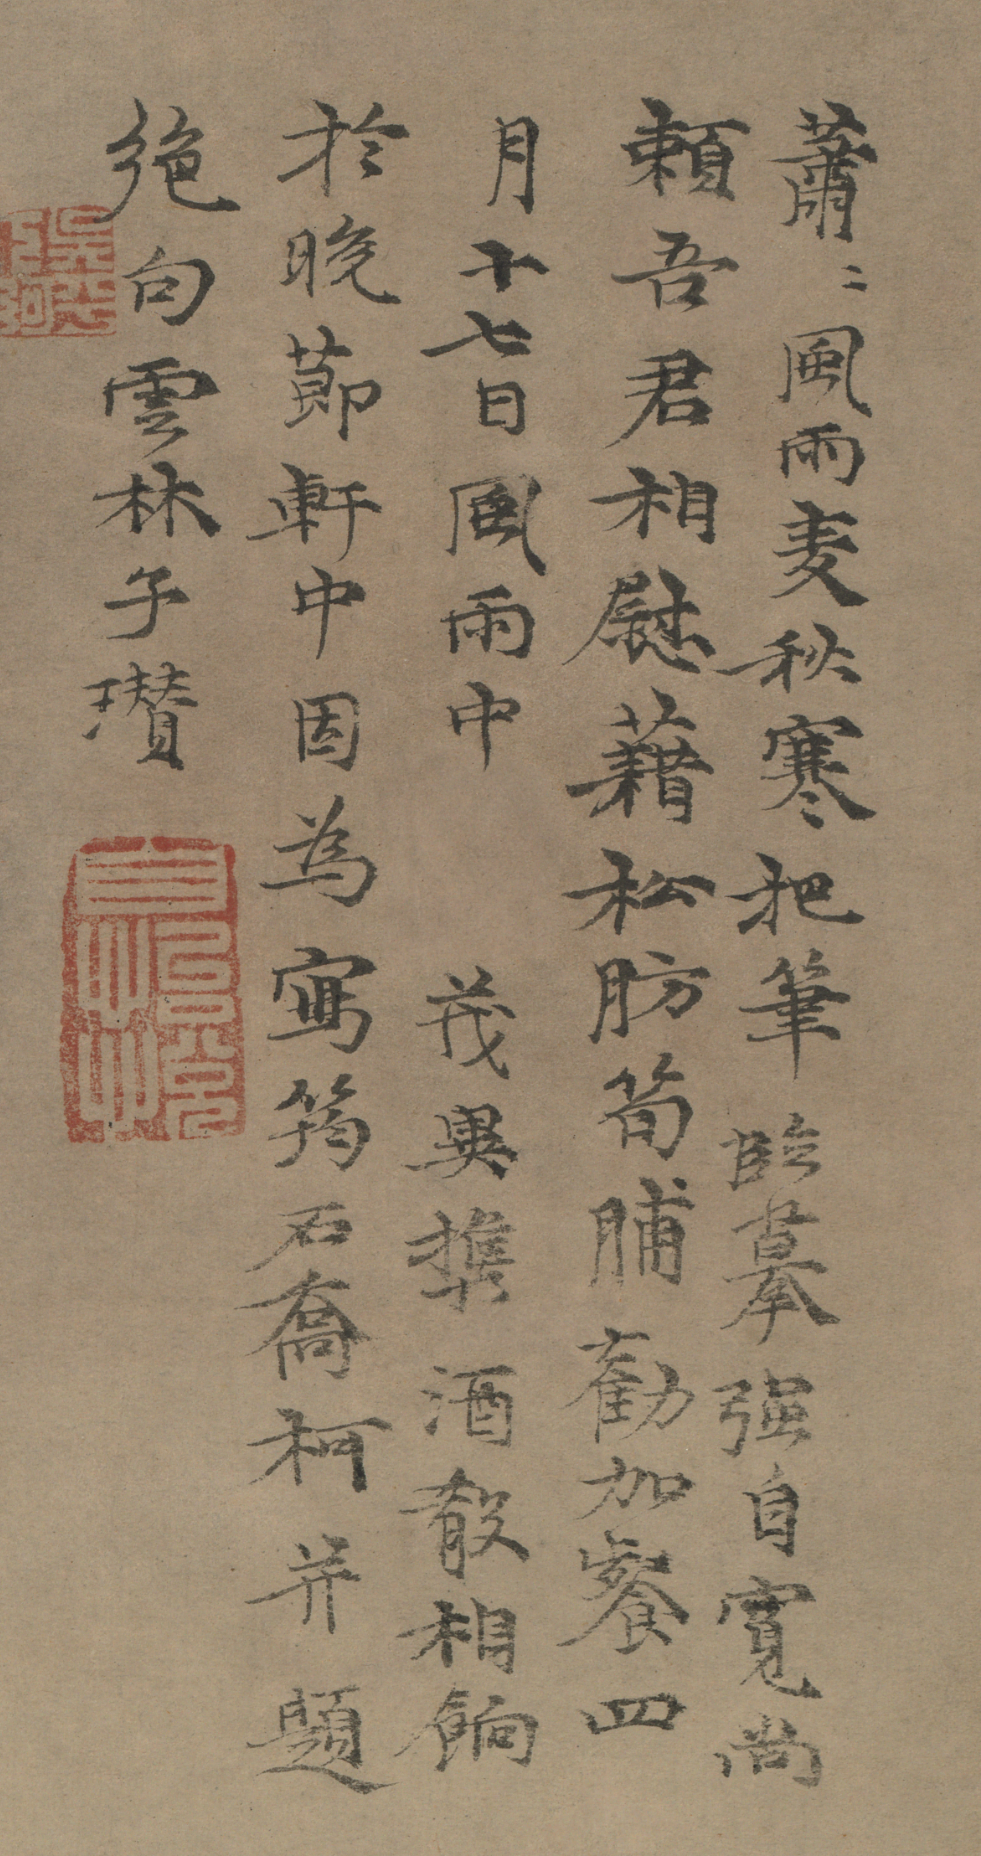 蕭〻風雨麦秋寒把筆臨摹強自寬尚
頼吾君相慰藉松肪筍脯勸加餐四
月十七日風雨中 茂異攜酒散相餉
於晚節軒中因為寫筠石喬柯并題
絶句雲林子瓚